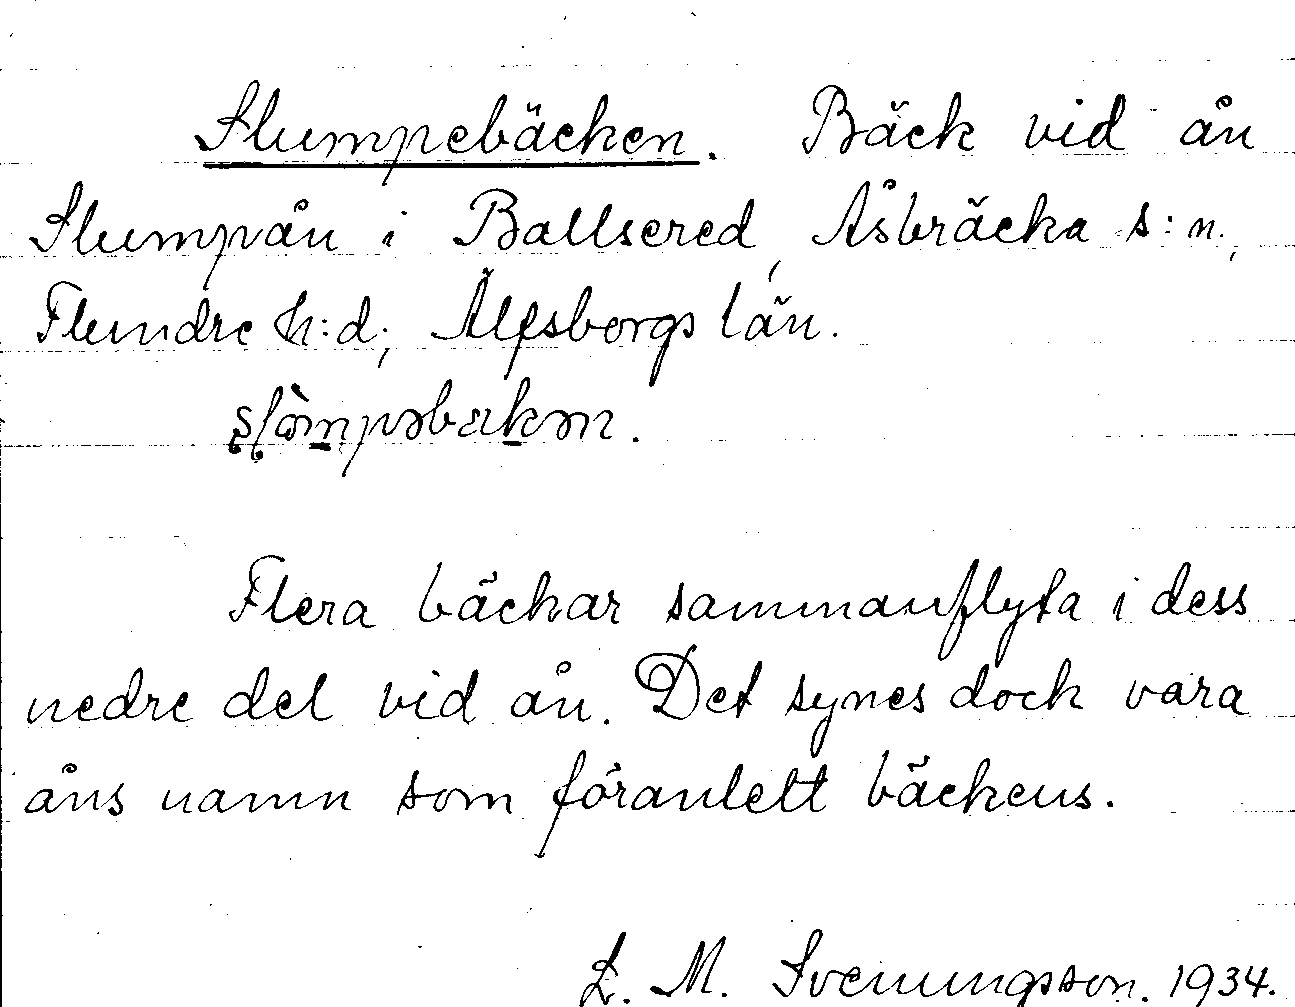 Slumpebäcken. Bäck vid ån
Slumpån i Ballsered, Åsbräcka s:n.,
Flundre h:d; Älfsborgs län.
slòmpəbækən.
Flera bäckar sammanflyta i dess
nedre del vid ån. Det synes dock vara
åns namn som föranlett bäckens.
L. M. Svenungsson. 1934.